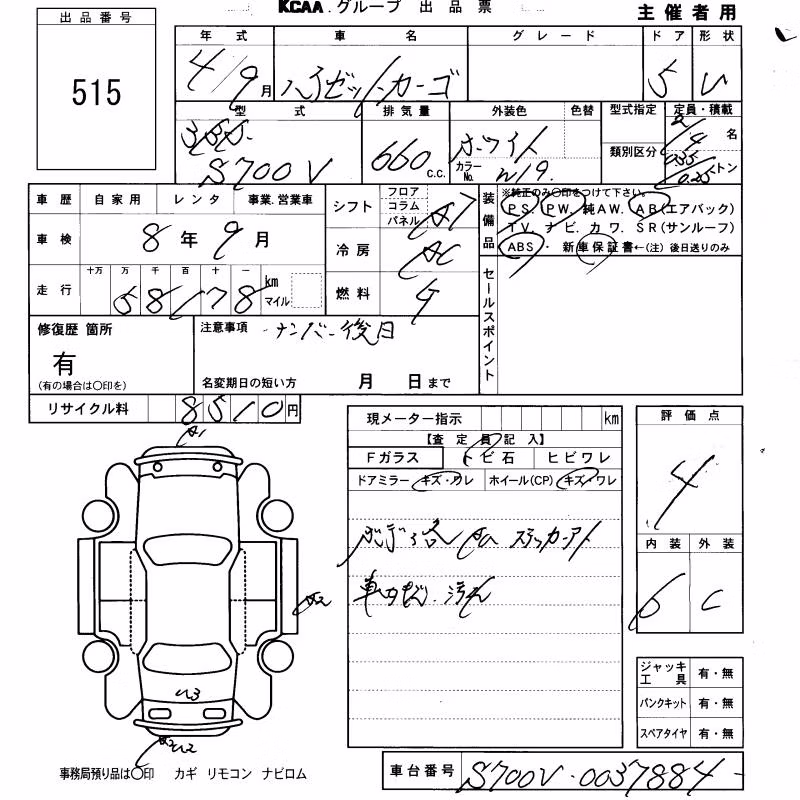 出品番号
515
KCAA グループ 出品票
主催者用
年式 車名 グレード ドア 形状
4/9月 ハイゼットカーゴ 5 V
型式 排気量 外装色 色替 型式指定 定員・積載
3BD-
S700V
660 c.c.
ホワイト
カラーNo. W19
類別区分
2/4 名
0.35/0.25 トン
車歴 自家用 レンタ 事業.営業車
車検 8年9月
走行 十万 万 千 百 十 一
58178 km マイル
シフト フロア コラム パネル AT
冷房 AC
燃料 G
装備品
※純正のみ○印をつけて下さい。
PS. PW. 純AW. AB(エアバック)
TV. ナビ. カワ. SR(サンルーフ)
ABS・新車保証書←(注) 後日送りのみ
セールスポイント
修復歴 箇所
有
(有の場合は○印を)
注意事項 ナンバー後日
名変期日の短い方 月 日まで
リサイクル料 8510円
現メーター指示 km
【査定員記入】
Fガラス トビ石 ヒビワレ
ドアミラー キズ・ワレ ホイール(CP) キズ・ワレ
車内 汚れ
評価点
4
内装 外装
C
A1
U3
ジャッキ工具 有・無
パンクキット 有・無
スペアタイヤ 有・無
事務局預り品は○印 カギ リモコン ナビロム
車台番号 S700V-0037884